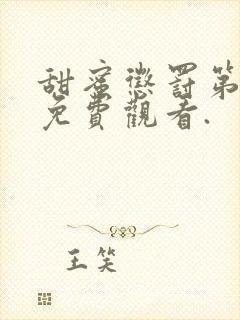 甜蜜懲罰第
免費觀看.
王笑